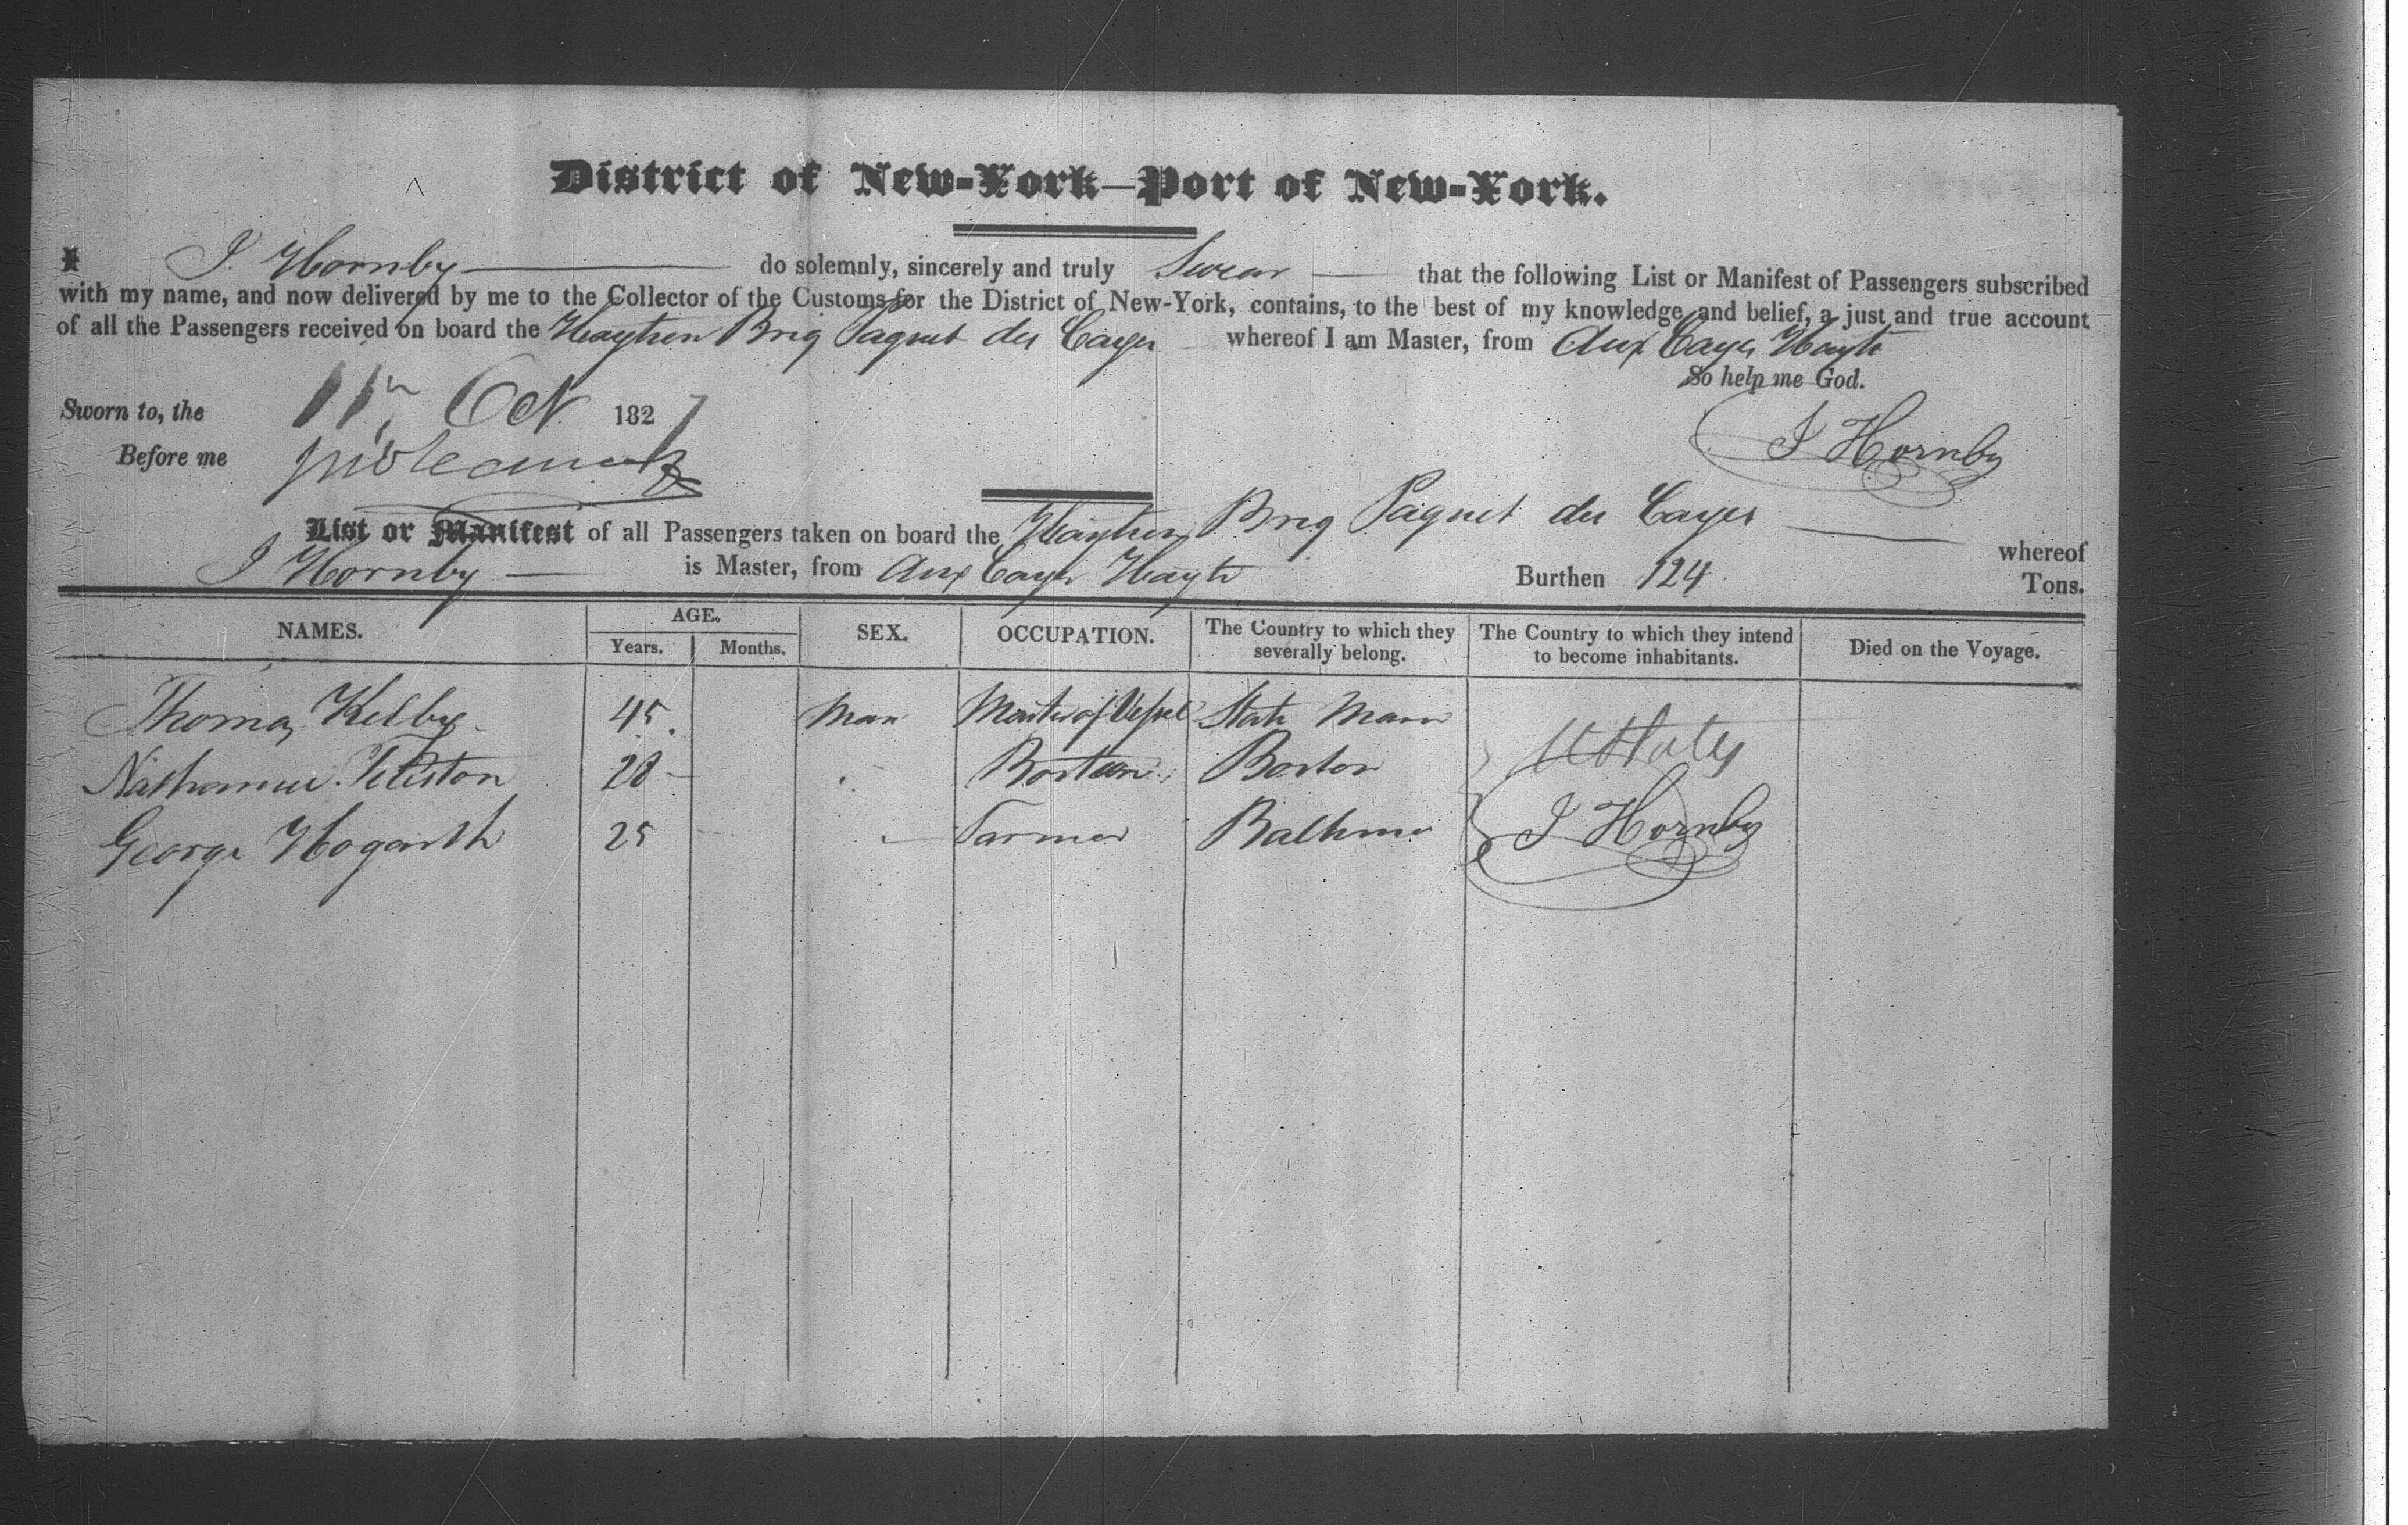 District of New-York—Port of New-York.
I J. Hornby do solemnly, sincerely and truly Swear that the following List or Manifest of Passengers subscribed
with my name, and now delivered by me to the Collector of the Customs for the District of New-York, contains, to the best of my knowledge and belief, a just and true account
of all the Passengers received on board the Haytien Brig Paquet des Cayes whereof I am Master, from Aux Cayes Hayti
So help me God.
Sworn to, the 11th Oct 1827
J Hornby
Before me
List or Manifest of all Passengers taken on board the Haytien Brig Paquet des Cayes whereof
J Hornby is Master, from Aux Cayes Hayti Burthen 124 Tons.
NAMES. AGE. SEX. OCCUPATION. The Country to which they severally belong. The Country to which they intend to become inhabitants. Died on the Voyage.
Years. Months.
Thomas Kelby 45 Man Master of Vessel State Man
28 Boston
George Hogarth 25 Farmer Baltimo
U States
J Hornby